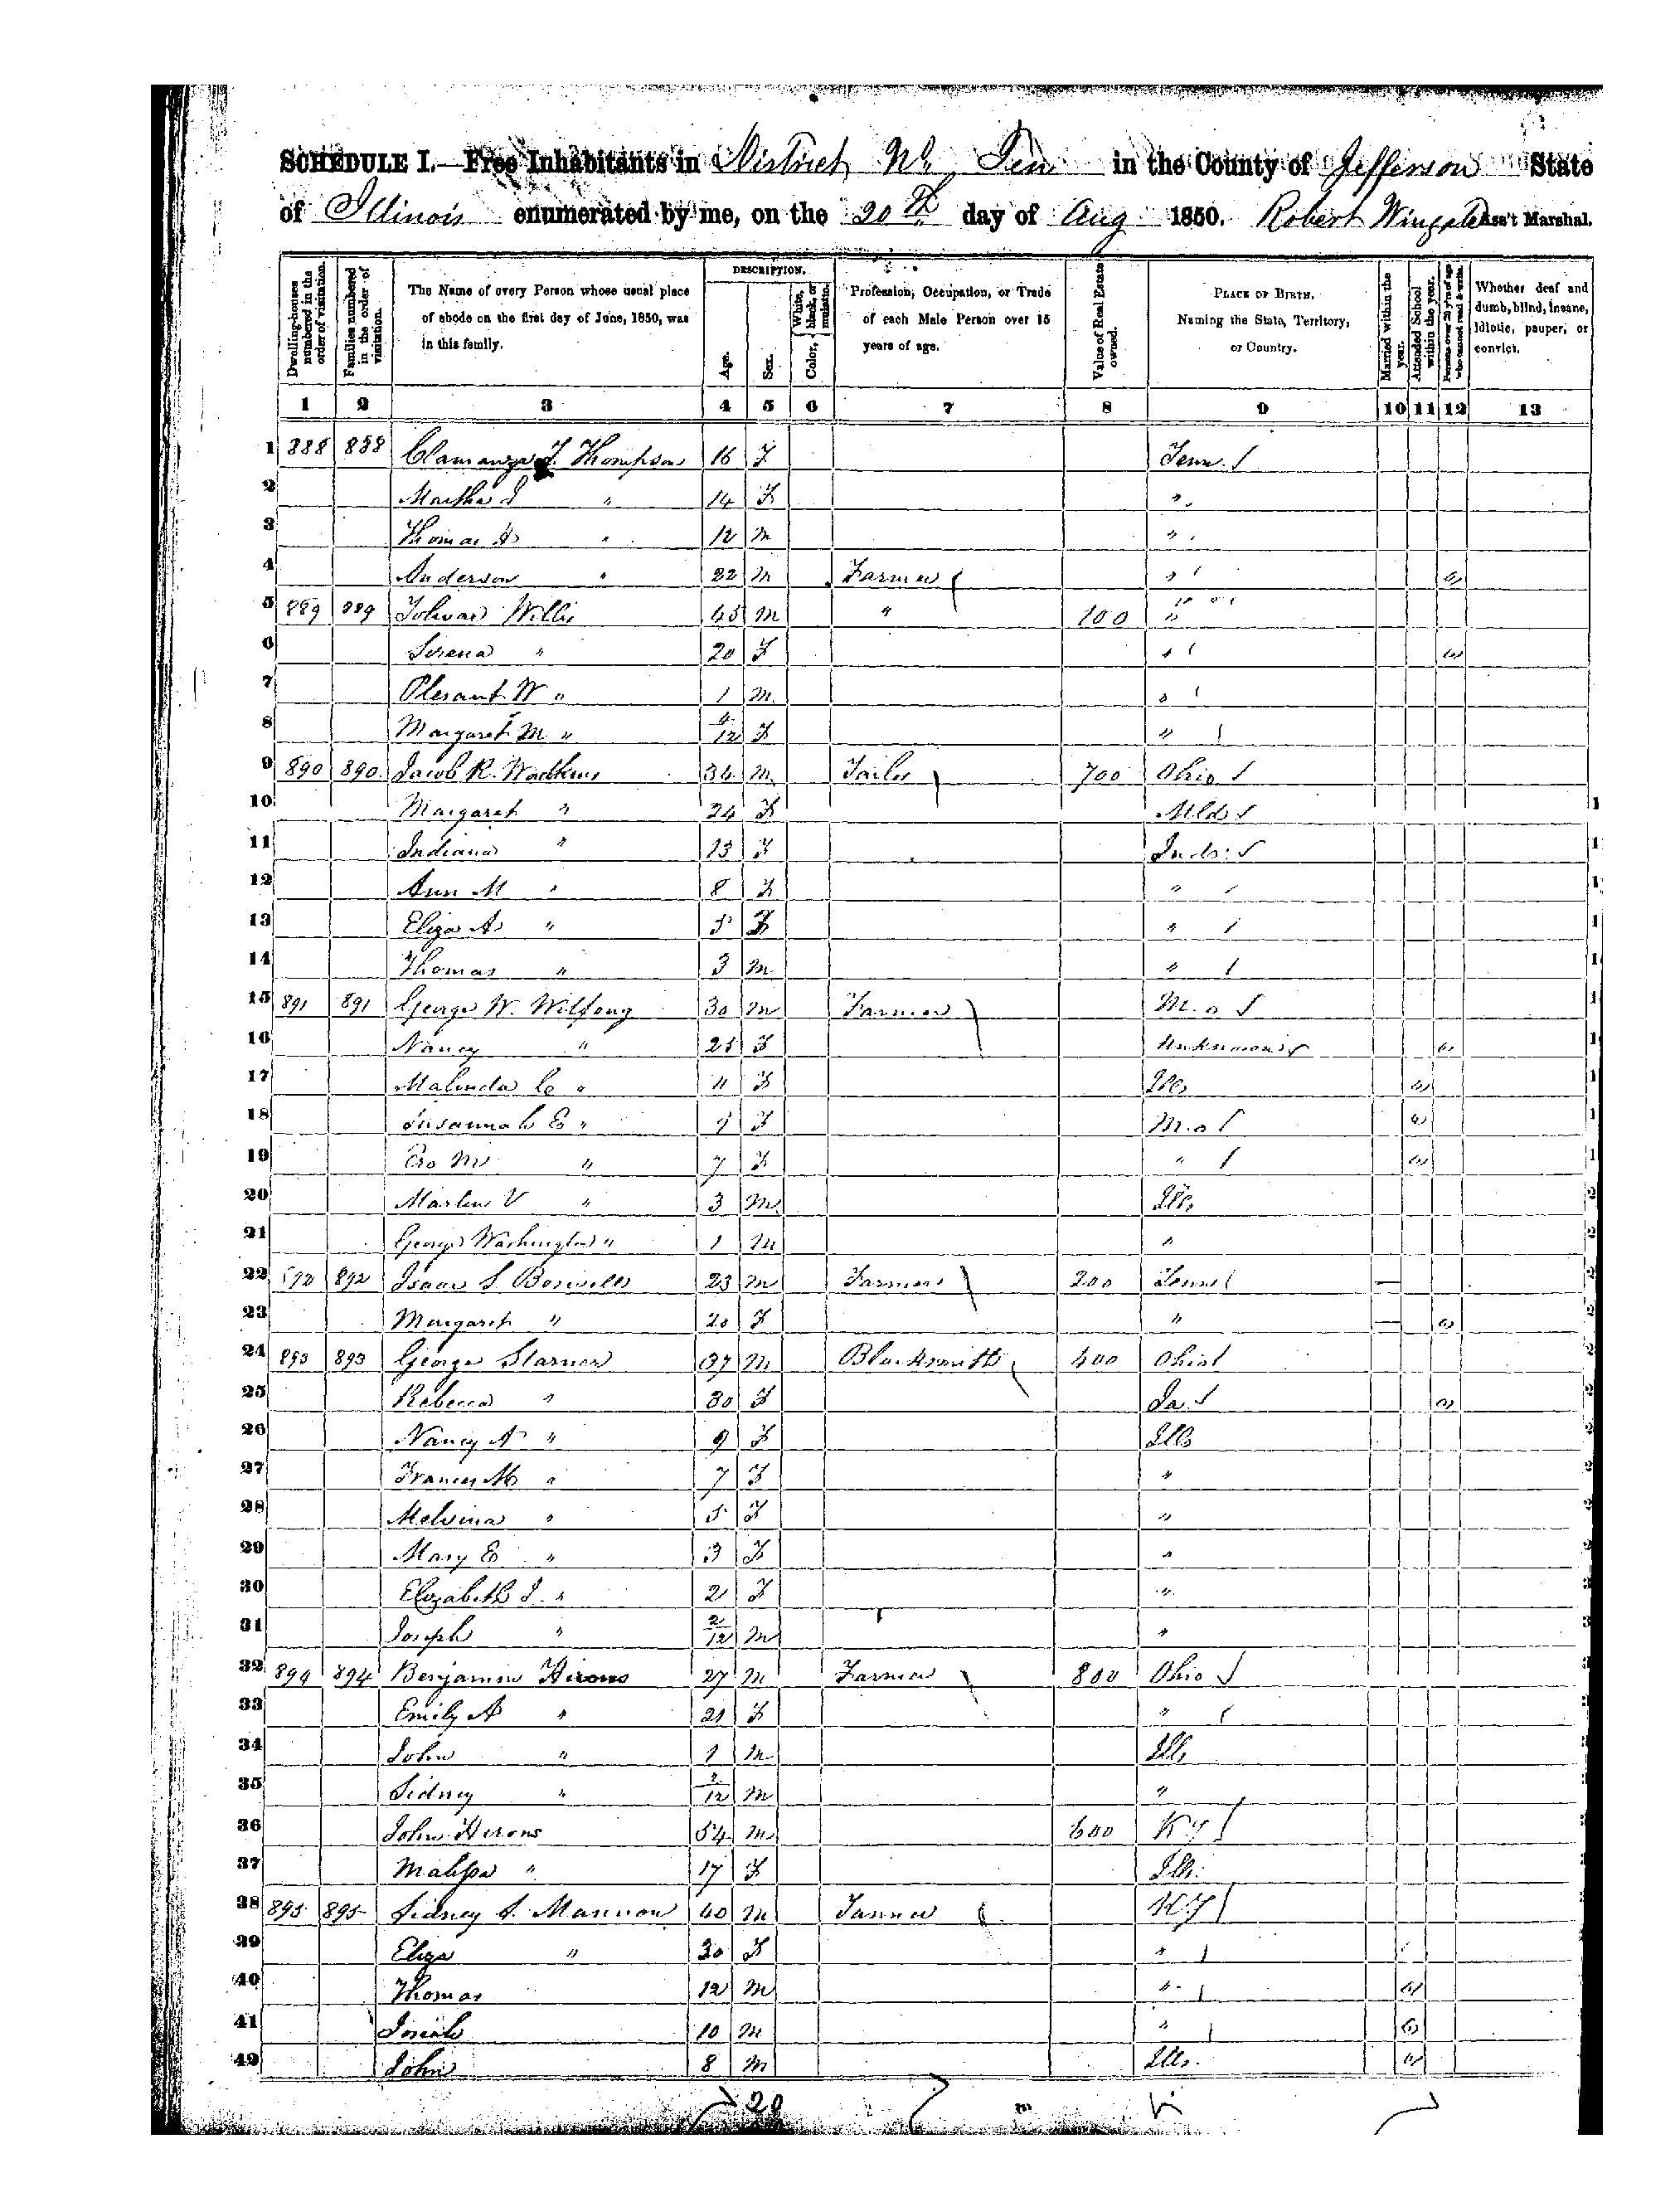 SCHEDULE I.—Free Inhabitants in District No. Ten in the County of Jefferson State
of Illinois enumerated by me, on the 20th day of Aug 1850. Robert Wingate Ass't Marshal.
Dwelling-houses numbered in the order of visitation.
Families numbered in the order of visitation.
The Name of every Person whose usual place of abode on the first day of June, 1850, was in this family.
DESCRIPTION.
Age.
Sex.
Color, White, black, or mulatto.
Profession, Occupation, or Trade of each Male Person over 15 years of age.
Value of Real Estate owned.
PLACE OF BIRTH. Naming the State, Territory, or Country.
Married within the year.
Attended School within the year.
Persons over 20 y'rs of age who cannot read & write.
Whether deaf and dumb, blind, insane, idiotic, pauper, or convict.
1 2 3 4 5 6 7 8 9 10 11 12 13
1 888 888 Thompson 16 F Tenn.
2 Martha J " 14 F "
3 Thomas " 12 M "
4 Anderson " 22 M Farmer "
5 889 889 Willis 45 M " 100 "
6 Serena " 20 F "
7 Plesant W " 1 M "
8 Margaret M " /12 F "
9 890 890 Jacob R. Wadkins 34 M Tailor 700 Ohio
10 Margaret " 24 F Mld
11 Indiana " 13 F Inda.
12 Ann M " 8 F "
13 Eliza A " 5 F "
14 Thomas " 3 M "
15 891 891 George W. Wilfong 30 M Farmer M.o
16 Nancy " 25 F Unknown
17 Malinda C " 11 F Ills
18 Susannah E " 9 F M.o
19 M " 7 F "
20 Martin V " 3 M Ills
21 George Washington " 1 M "
22 892 892 Isaac S. Boswell 23 M Farmer 200 Tenn
23 Margaret " 20 F "
24 893 893 George Starner 37 M Blacksmith 400 Ohio
25 Rebecca " 30 F
26 Nancy A " 9 F Ills
27 Frances M " 7 F "
28 Melvina " 5 F "
29 Mary E " 3 F "
30 Elizabeth J. " 2 F "
31 Joseph " 2/12 M "
32 894 894 Benjamin Hirons 27 M Farmer 800 Ohio
33 Emily A " 21 F "
34 John " 1 M Ills
35 Sidney " 2/12 M "
36 John Hirons 54 M 600 KY
37 Malissa " 17 F Ills.
38 895 895 Sidney S. Mannon 40 M Tanner KY
39 Eliza " 30 F "
40 Thomas 12 M "
41 Josiah 10 M "
42 John 8 M Ills.
20